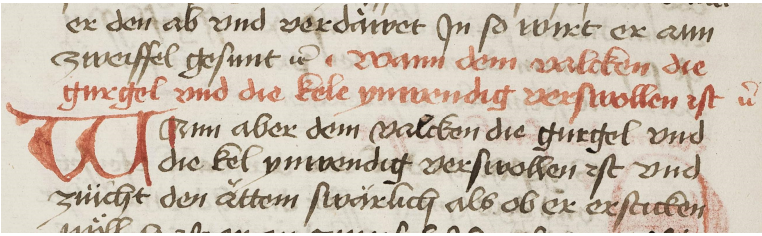 er den ab vnd verdäwet Jn so wirt er ann
zweiffel gesunt ꝛc̄ . Wann dem valcken die
gurgel vnd die kele ynwendig verswollen ist ꝛc̄
Wann aber dem valcken die gurgel vnd
die kel ynwendig verswollen ist vnd
züicht den ättem swärlich als ob er ersticken